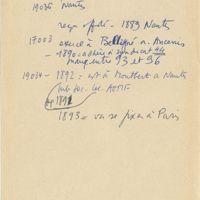 19036 Nantes
reçu offic. - 1883 Nantes
17003 exerce à Belligné a. Ancenis
- 1890 adhère à syndicat 44
manq entre 93 et 96
19034 - 1892 = est à Montbert a. Nantes
1892
1893 = va se fixer à Paris